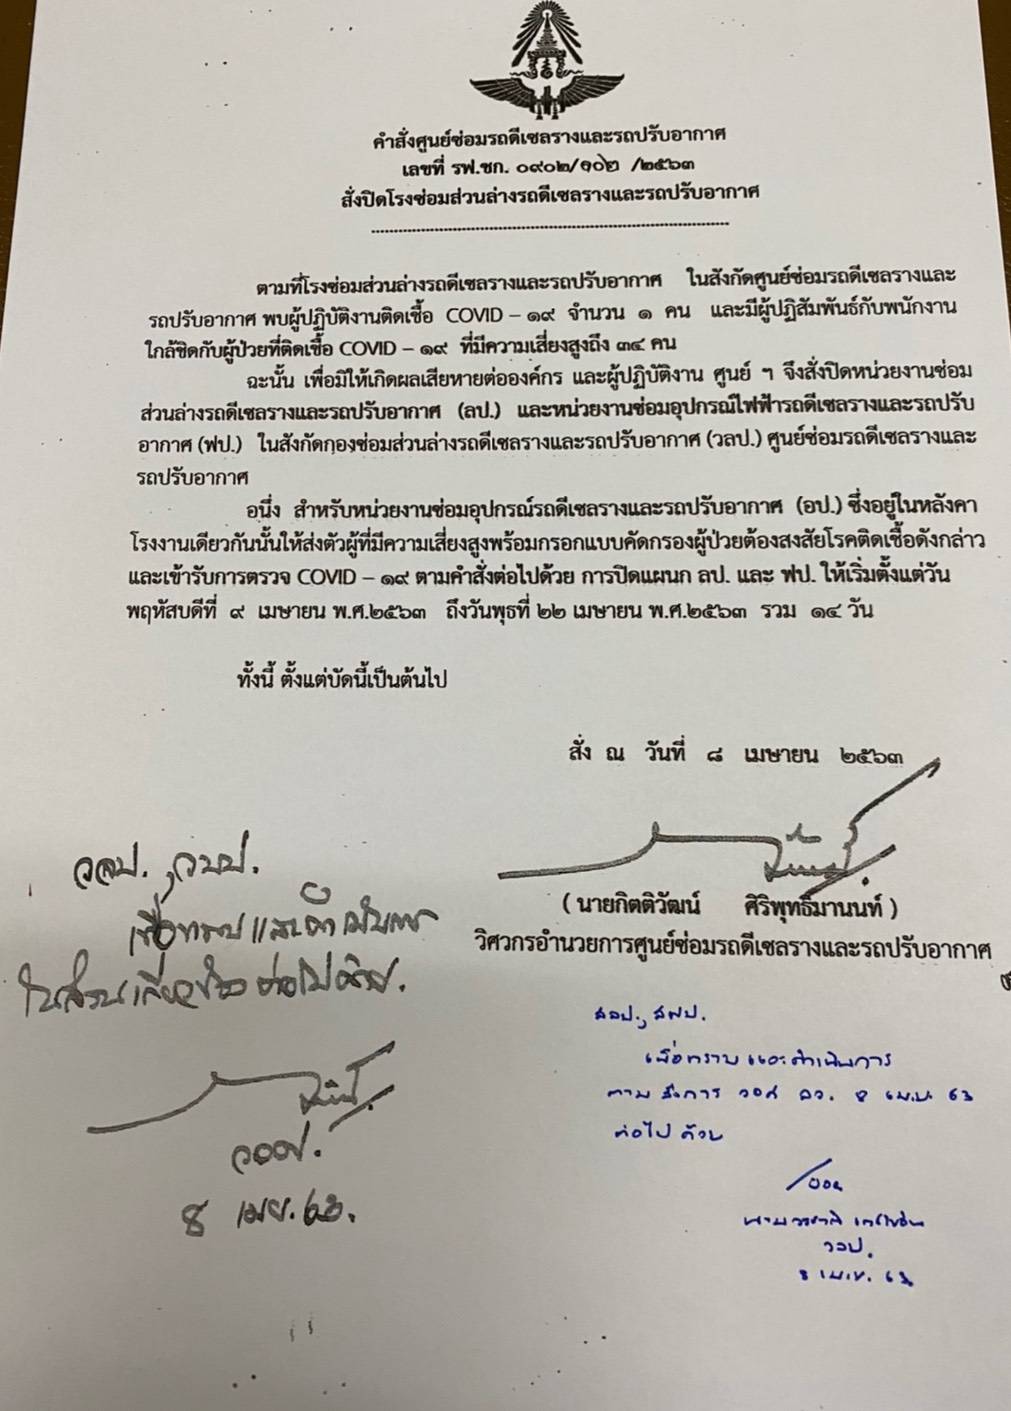 คำสั่งศูนย์ซ่อมรถดีเซลรางและรถปรับอากาศ
เลขที่ รฟ.ชก. ๐๙๐๒/๑๐๒ /๒๕๖๓
สั่งปิดโรงซ่อมส่วนล่างรถดีเซลรางและรถปรับอากาศ
ตามที่โรงซ่อมส่วนล่างรถดีเซลรางและรถปรับอากาศ ในสังกัดศูนย์ซ่อมรถดีเซลรางและ
รถปรับอากาศ พบผู้ปฏิบัติงานติดเชื้อ COVID – ๑๙ จำนวน ๑ คน และมีผู้ปฏิสัมพันธ์กับพนักงาน
ใกล้ชิดกับผู้ป่วยที่ติดเชื้อ COVID – ๑๙ ที่มีความเสี่ยงสูงถึง ๓๔ คน
ฉะนั้น เพื่อมิให้เกิดผลเสียหายต่อองค์กร และผู้ปฏิบัติงาน ศูนย์ ฯ จึงสั่งปิดหน่วยงานซ่อม
ส่วนล่างรถดีเซลรางและรถปรับอากาศ (ลป.) และหน่วยงานซ่อมอุปกรณ์ไฟฟ้ารถดีเซลรางและรถปรับ
อากาศ (ฟป.) ในสังกัดกองซ่อมส่วนล่างรถดีเซลรางและรถปรับอากาศ (วลป.) ศูนย์ซ่อมรถดีเซลรางและ
รถปรับอากาศ
อนึ่ง สำหรับหน่วยงานซ่อมอุปกรณ์รถดีเซลรางและรถปรับอากาศ (อป.) ซึ่งอยู่ในหลังคา
โรงงานเดียวกันนั้นให้ส่งตัวผู้ที่มีความเสี่ยงสูงพร้อมกรอกแบบคัดกรองผู้ป่วยต้องสงสัยโรคติดเชื้อดังกล่าว
และเข้ารับการตรวจ COVID – ๑๙ ตามคำสั่งต่อไปด้วย การปิดแผนก ลป. และ ฟป. ให้เริ่มตั้งแต่วัน
พฤหัสบดีที่ ๙ เมษายน พ.ศ.๒๕๖๓ ถึงวันพุธที่ ๒๒ เมษายน พ.ศ.๒๕๖๓ รวม ๑๔ วัน
ทั้งนี้ ตั้งแต่บัดนี้เป็นต้นไป
สั่ง ณ วันที่ ๘ เมษายน ๒๕๖๓
( นายกิตติวัฒน์ ศิริพุทธิมานนท์ )
วิศวกรอำนวยการศูนย์ซ่อมรถดีเซลรางและรถปรับอากาศ
วลป.
เพื่อทราบ และดำเนินการ
ในส่วนเกี่ยวข้อง ต่อไปด้วย.
8 เมย. 63.
เพื่อทราบ และดำเนินการ
ตาม สั่งการ 8 เม.ย. 63
ต่อไป ด้วย
วลป.
8 เม.ย. 63